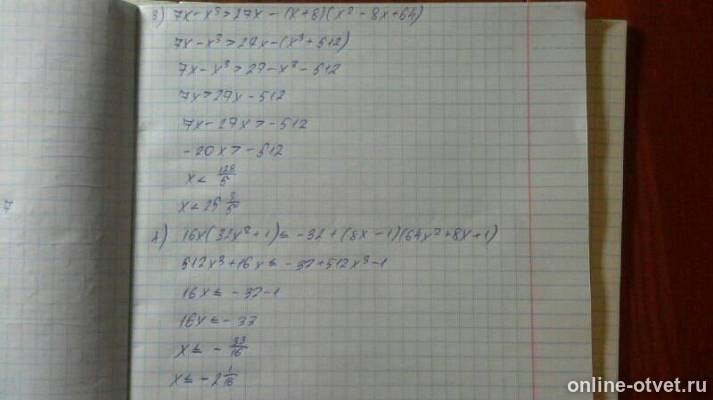 3) 7x - x³ > 27x - (x+8)(x² - 8x + 64)
7x - x³ > 27x - (x³ + 512)
7x - x³ > 27 - x³ - 512
7x > 27x - 512
7x - 27x > -512
-20x > -512
x < 128/5
x < 25 3/5
4) 16x(32x² + 1) ≤ -32 + (8x - 1)(64x² + 8x + 1)
512x³ + 16x ≤ -32 + 512x³ - 1
16x ≤ -32 - 1
16x ≤ -33
x ≤ - 33/16
x ≤ -2 1/16
online-otvet.ru